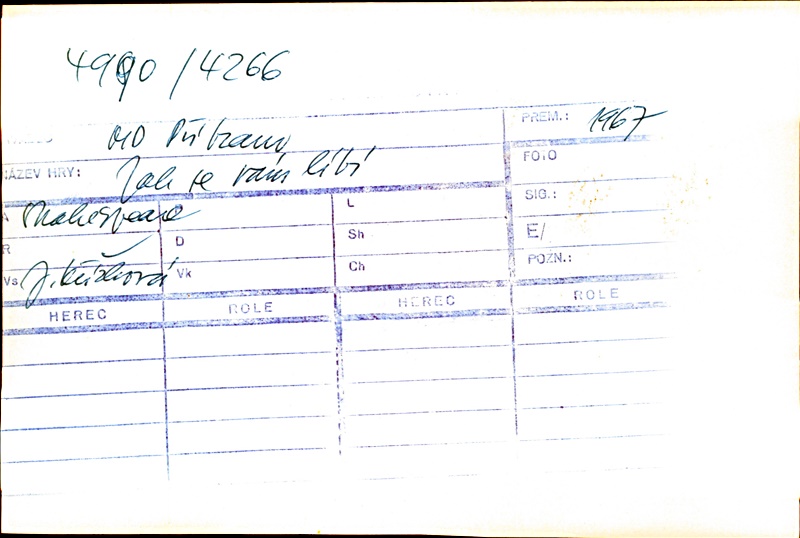 4990 / 4266
PREM.: 1967
MD Příbram
NÁZEV HRY: Jak se vám líbí
FOTO
A Shakespeare
L
SIG.:
R
D
Sh
E/
Vs J. Křížková
Vk
Ch
POZN.:
HEREC ROLE HEREC ROLE